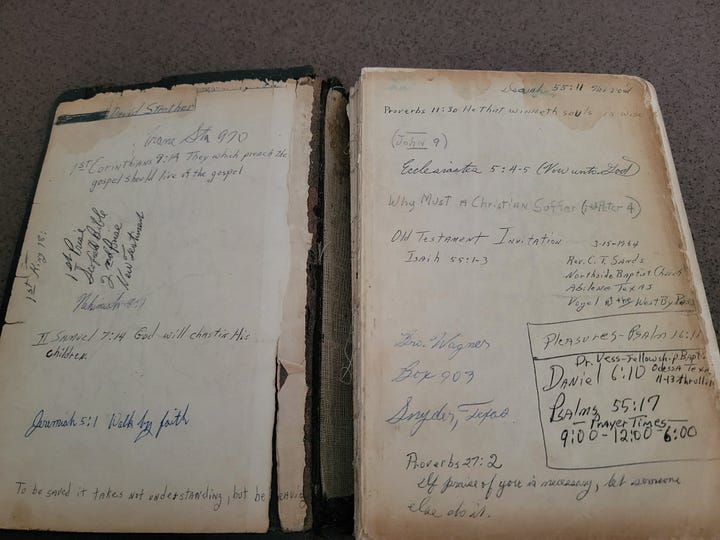 David
Sta 970
1st Corinthians 9:14 They which preach the
gospel should live of the gospel
1st King 18:
1st Prise
Scofield Bible
2nd Prise
New Testament
Nehemiah 8:
II Samuel 7:14 God will chastin His
children
Jeremiah 5:1 Walk by faith
To be saved it takes not understanding, but
Isaiah 55:11
Proverbs 11:30 He that winneth souls is wise
(John 9)
Ecclesiastes 5:4-5 (Vow unto God)
Why Must A Christian Suffer (1st Peter 4)
Old Testament Invitation 3-15-1964
Isaih 55:1-3 Rev. C. T. Sands
Northside Baptist Church
Abilene Texas
Vogel West By Pass
Pleasures-Psalm 16:11
Bro. Wagner
Box 903
Snyder, Texas
Dr. Vess-Fellowship Bapt
Odessa Texas
Daniel 6:10 11-13 thru
Psalms 55:17
Prayer Times
9:00-12:00-6:00
Proverbs 27:2
If praise of you is necessary, let someone
else do it.